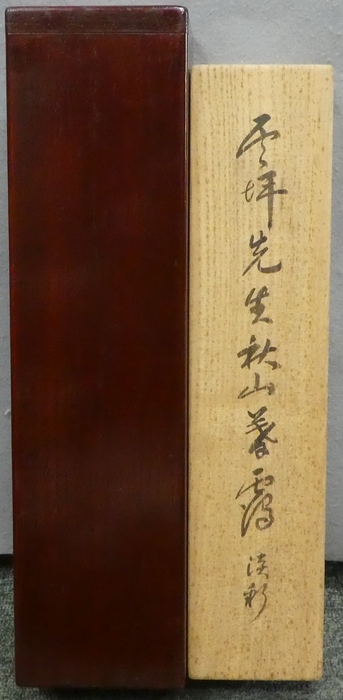 雲坪先生秋山暮靄 淡彩